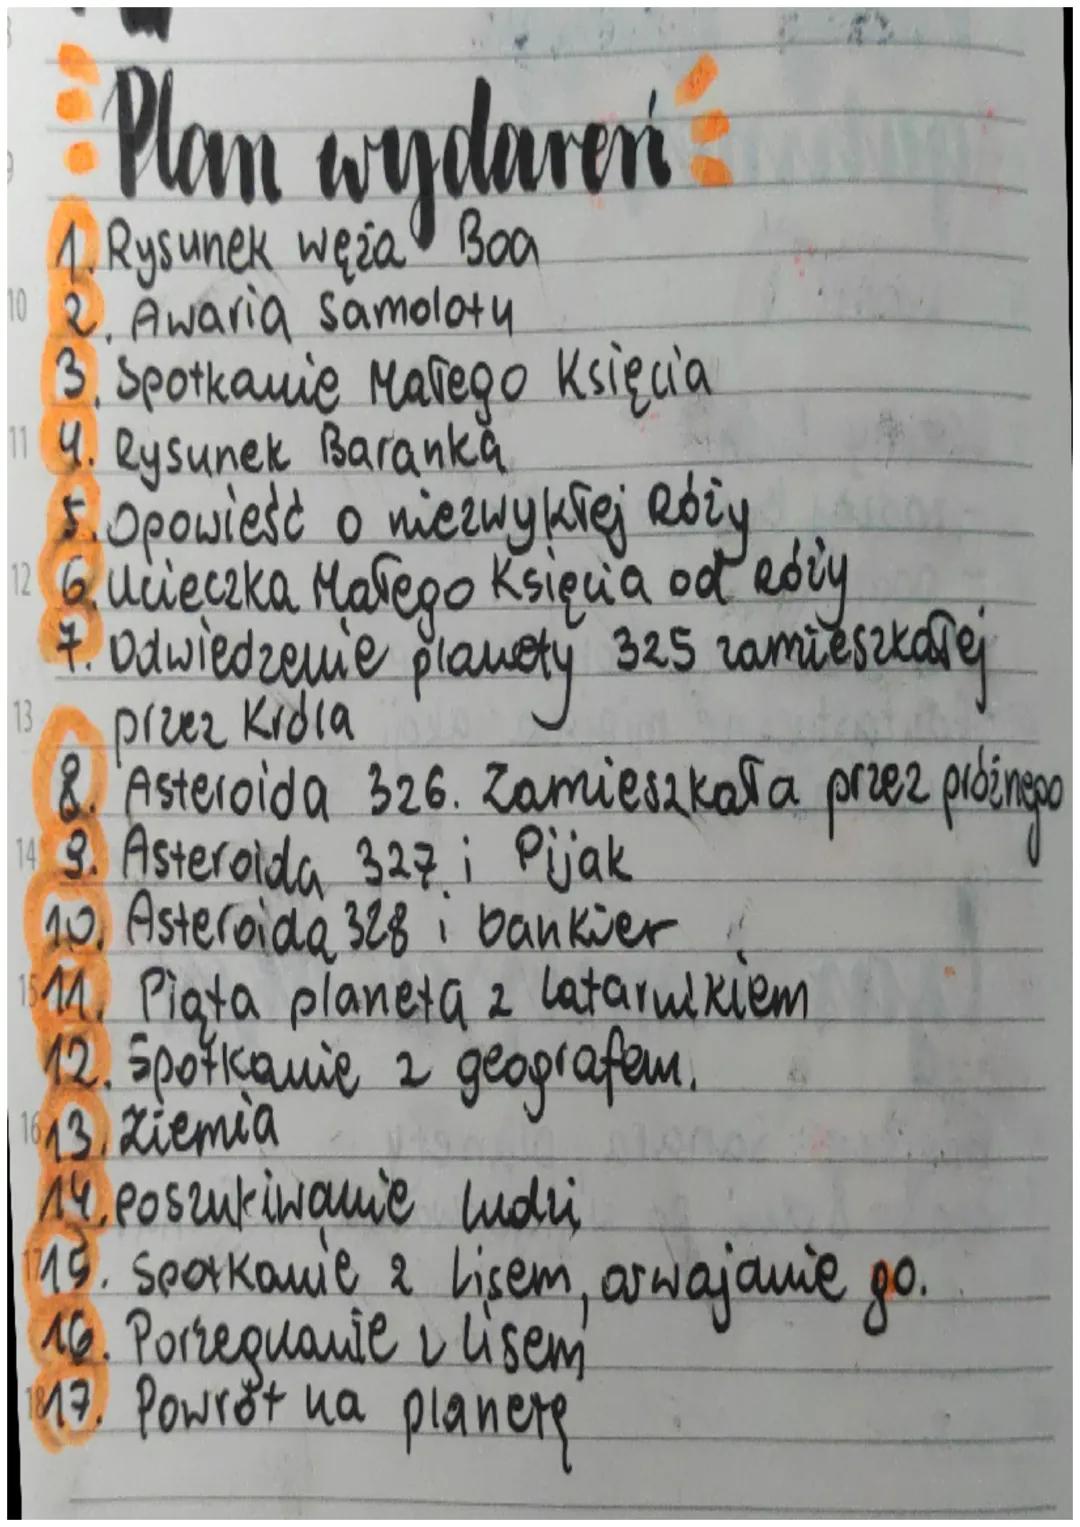 Plan wydareń
1. Rysunek węża Boa
2. Awaria samolotu
3. Spotkanie Małego Księcia
4. Rysunek Baranka
5. Opowieść o niezwykłej Róży
6. Ucieczka Małego Księcia od Róży
7. Odwiedzenie planety 325 zamieszkałej
przez Króla
8. Asteroida 326. Zamieszkała przez próżnego
9. Asteroida 327 i Pijak
10. Asteroida 328 i bankier
11. Piąta planeta z Latarnikiem
12. Spotkanie z geografem.
13. Ziemia
14. Poszukiwanie ludzi
15. Spotkanie z Lisem, oswajanie go.
16. Porzegnanie z lisem
17. Powrót na planetę